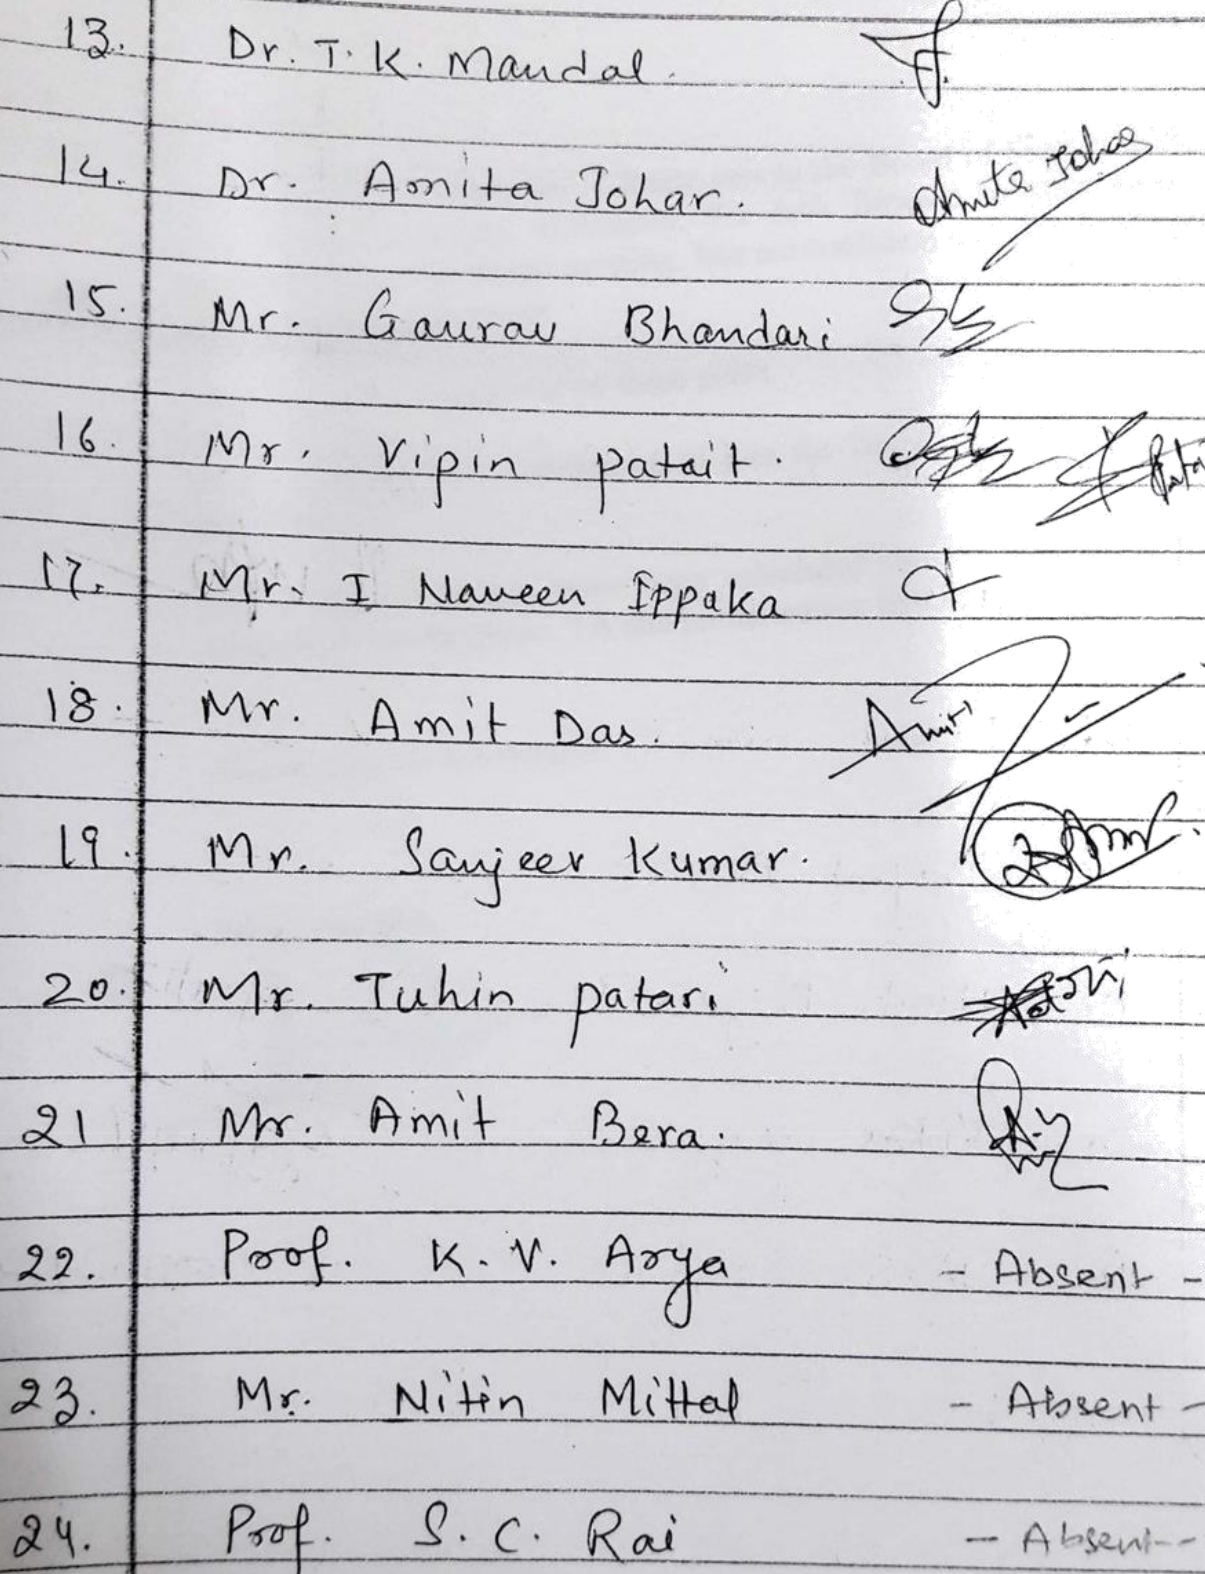 13. Dr. T. K. Mandal.
14. Dr. Amita Johar. Amita Johar
15. Mr. Gaurav Bhandari
16. Mr. Vipin patait.
17. Mr. I Naveen Ippaka
18. Mr. Amit Das. Amit
19. Mr. Sanjeev Kumar.
20. Mr. Tuhin patari
21 Mr. Amit Bera.
22. Prof. K. V. Arya - Absent -
23. Mr. Nitin Mittal - Absent -
24. Prof. S. C. Rai - Absent -